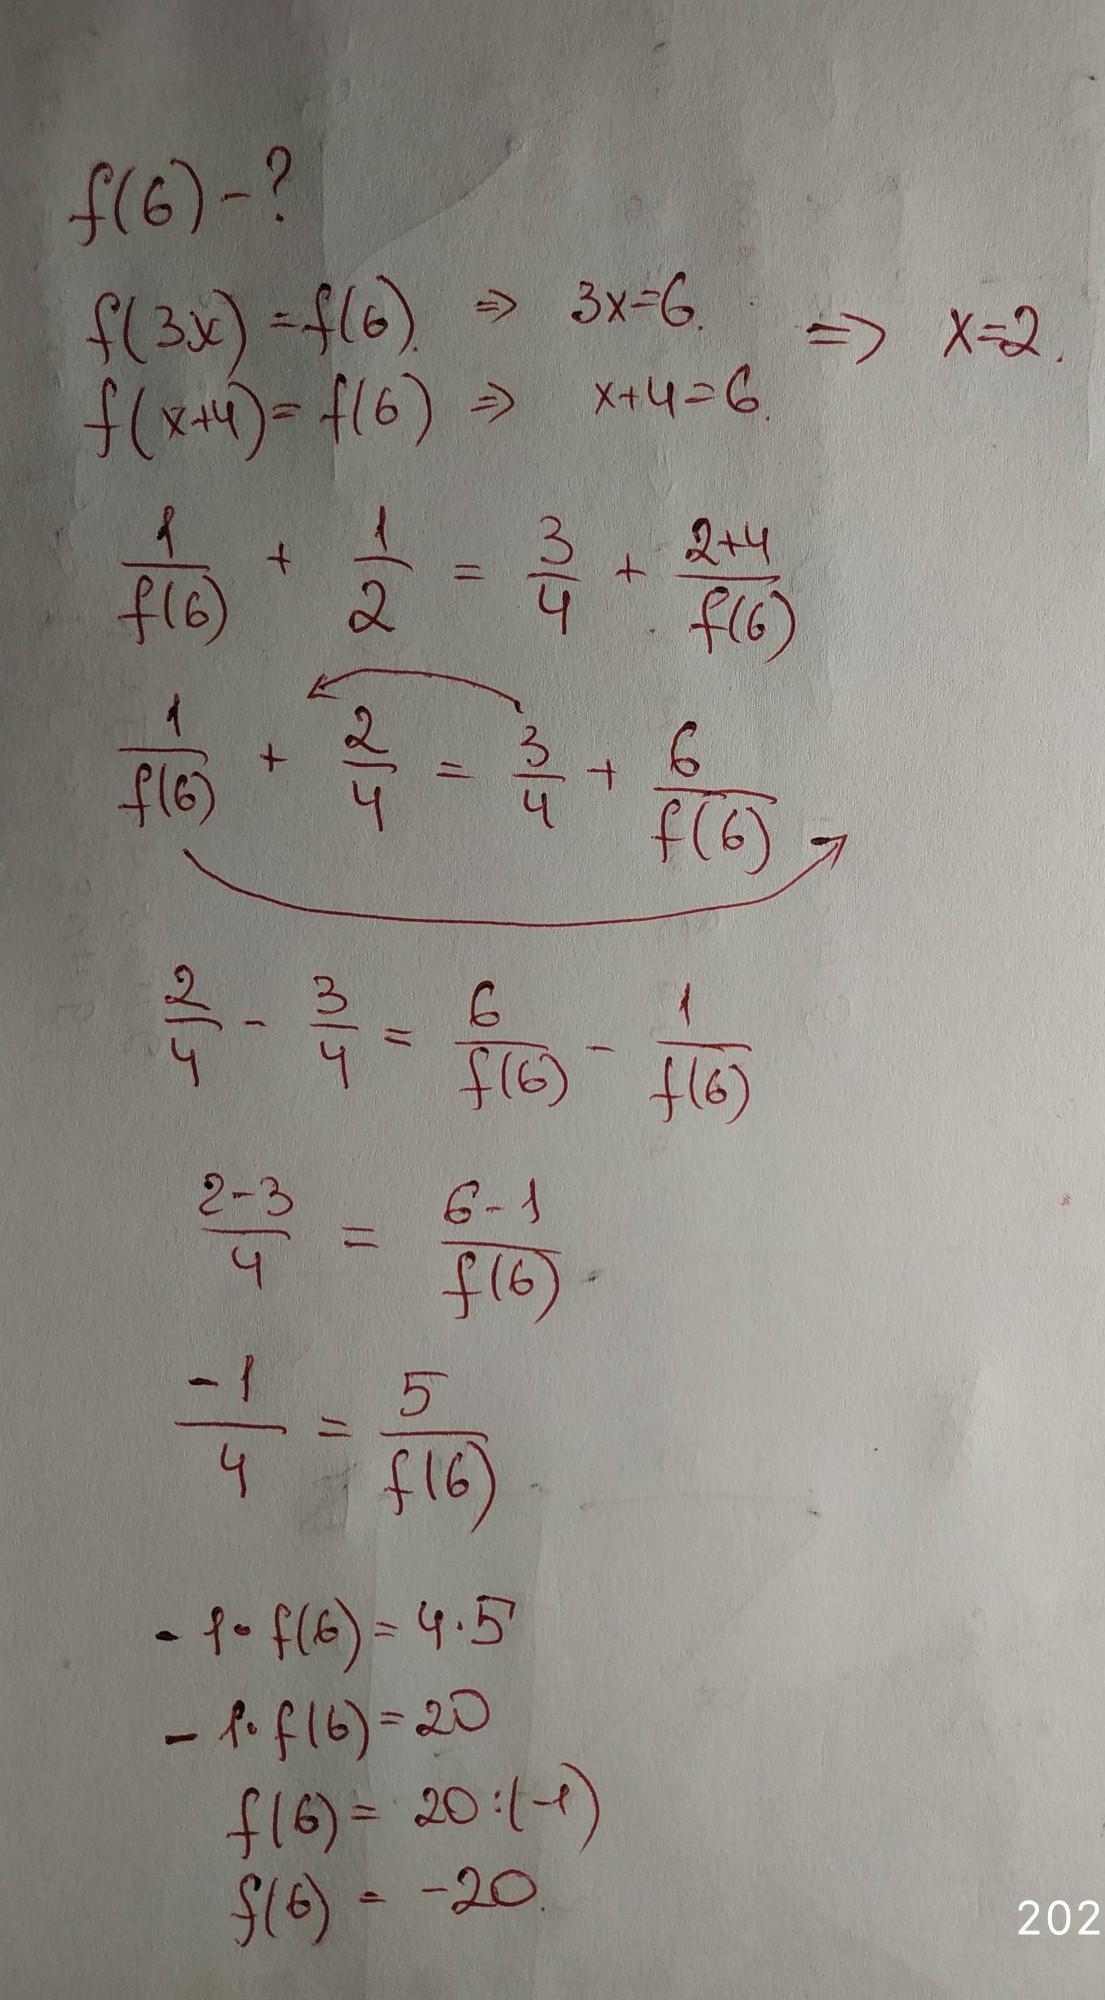 f(6) - ?
f(3x) = f(6). ⇒ 3x=6. ⇒ x=2.
f(x+4) = f(6) ⇒ x+4=6.
1/f(6) + 1/2 = 3/4 + (2+4)/f(6)
1/f(6) + 2/4 = 3/4 + 6/f(6)
2/4 - 3/4 = 6/f(6) - 1/f(6)
(2-3)/4 = (6-1)/f(6)
-1/4 = 5/f(6)
-1·f(6) = 4·5
-1·f(6) = 20
f(6) = 20:(-1)
f(6) = -20.
202